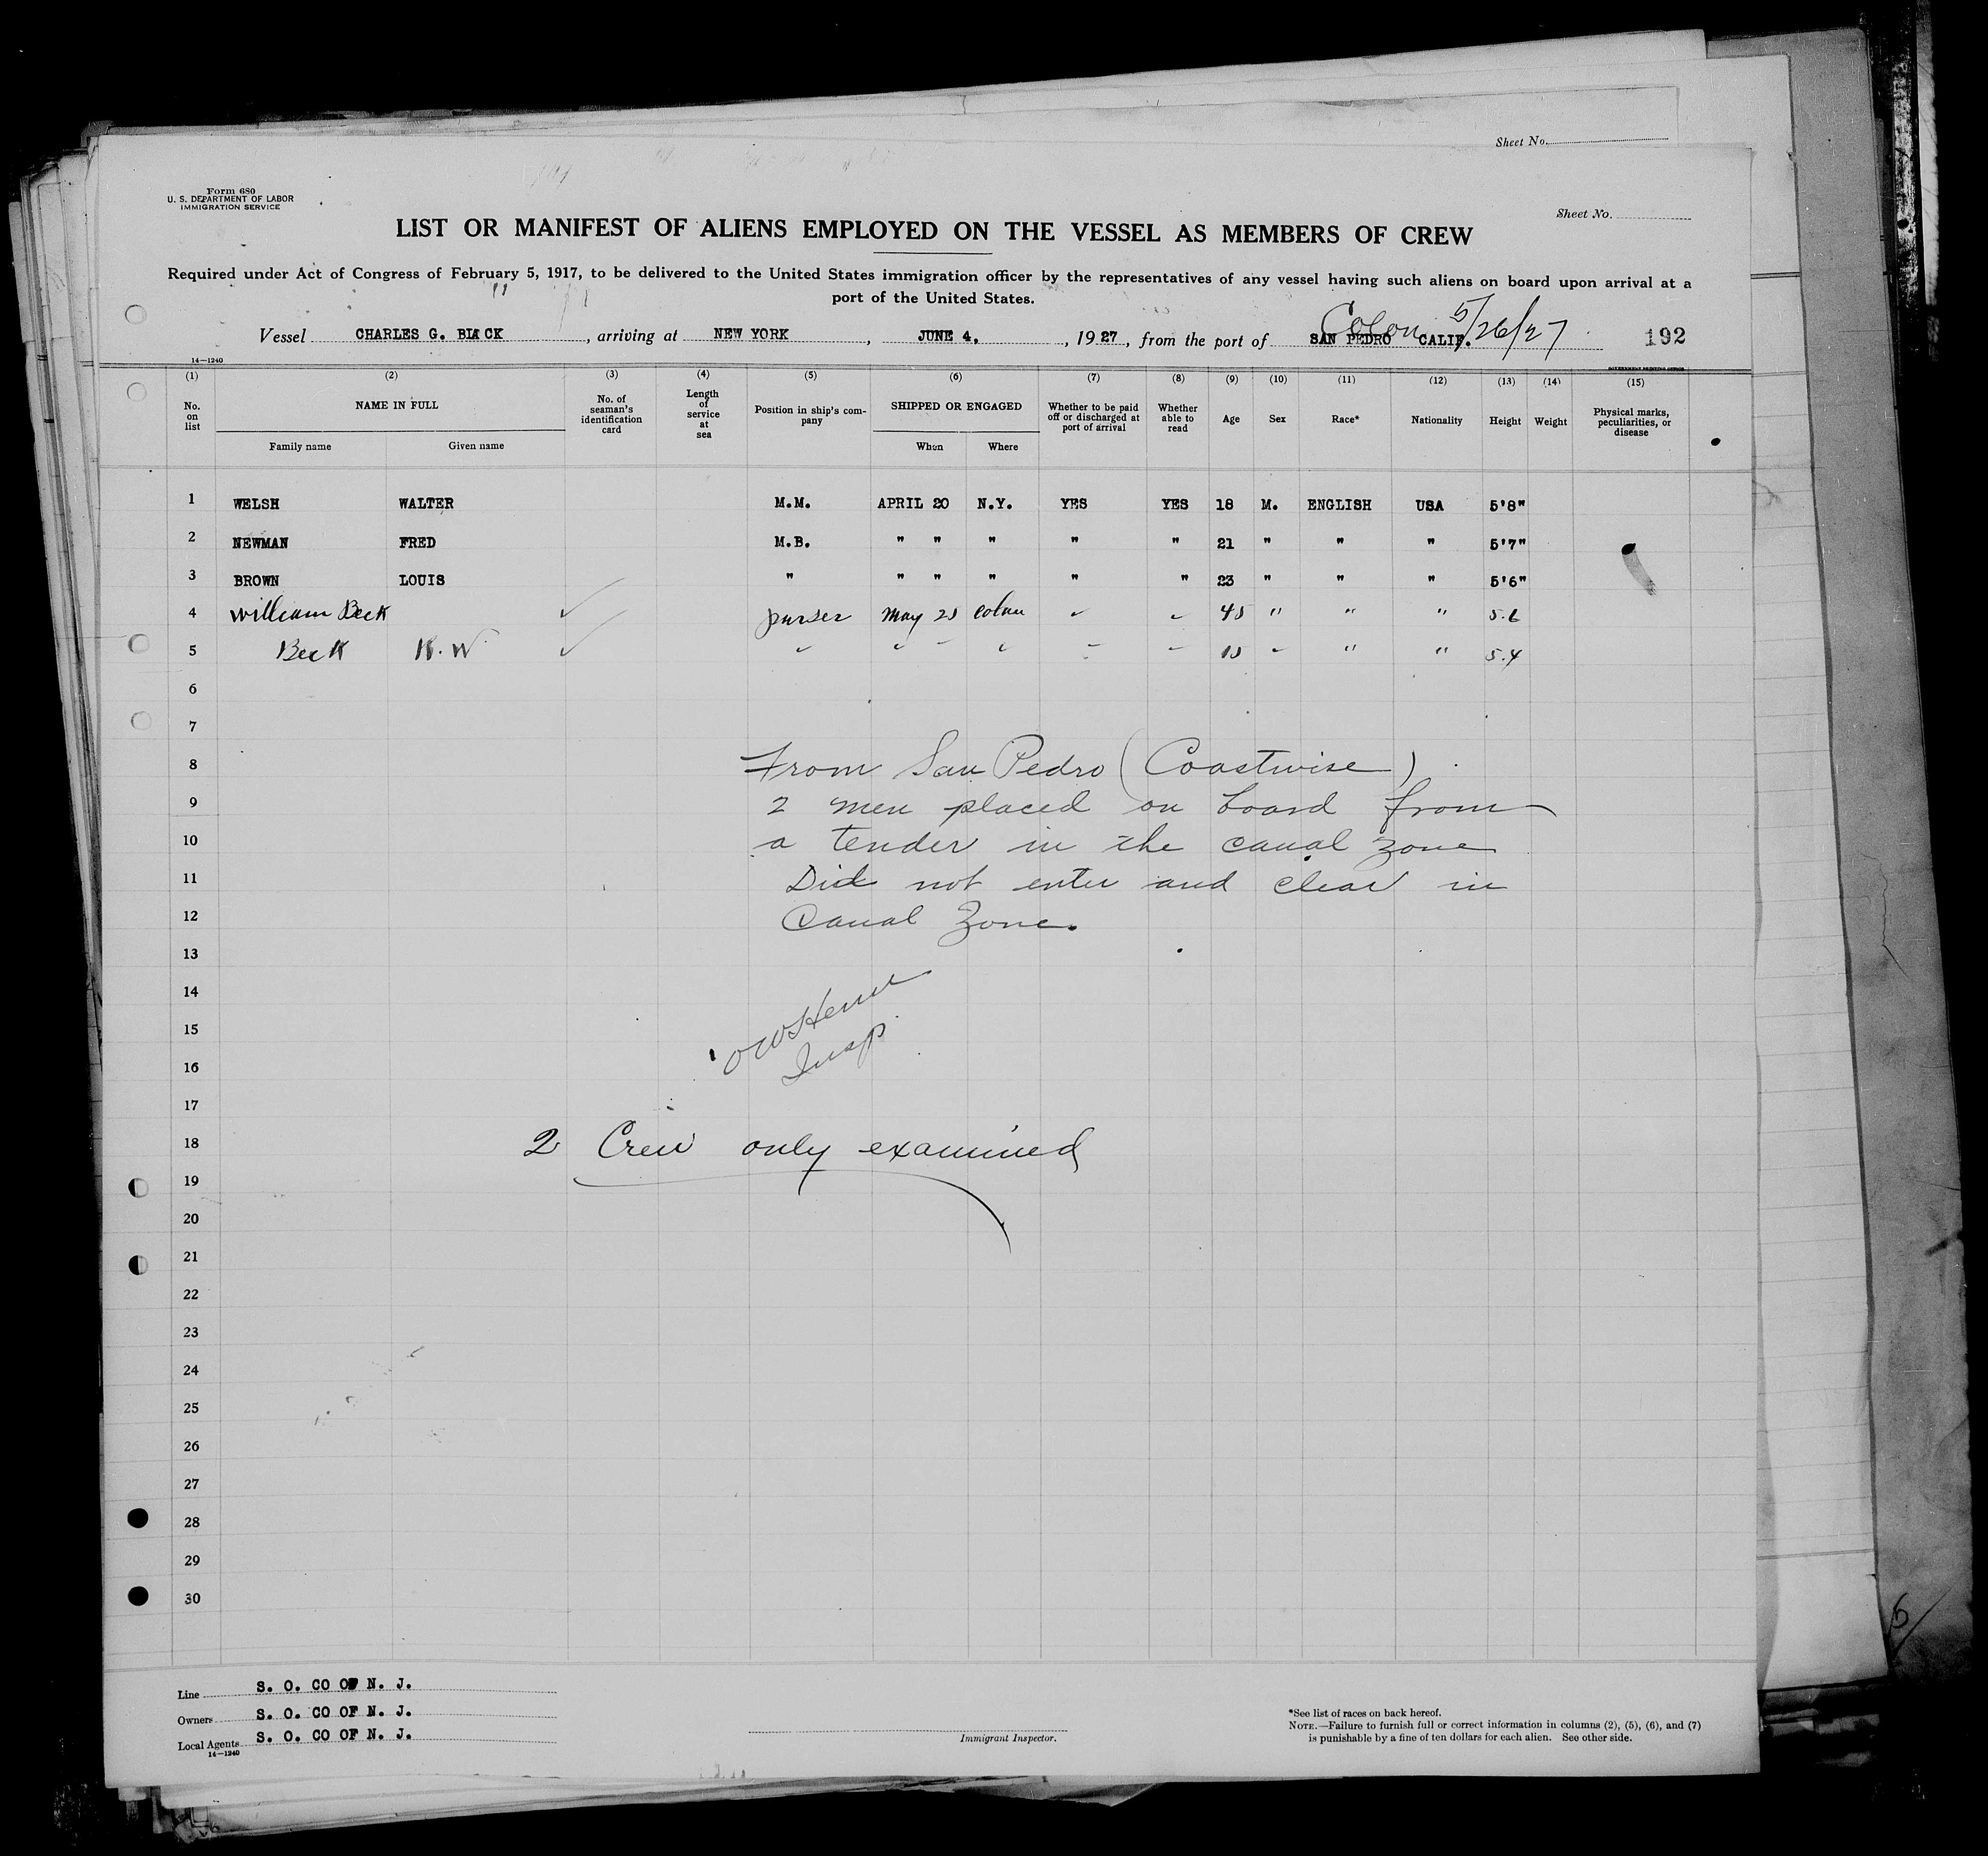 Sheet No.
Form 680
U. S. DEPARTMENT OF LABOR
IMMIGRATION SERVICE
Sheet No.
LIST OR MANIFEST OF ALIENS EMPLOYED ON THE VESSEL AS MEMBERS OF CREW
Required under Act of Congress of February 5, 1917, to be delivered to the United States immigration officer by the representatives of any vessel having such aliens on board upon arrival at a
port of the United States.
Colon 5/26/27
Vessel CHARLES G. BLACK, arriving at NEW YORK, JUNE 4, 1927, from the port of SAN PEDRO CALIF. 192
14—1240
GOVERNMENT PRINTING OFFICE
(1) (2) (3) (4) (5) (6) (7) (8) (9) (10) (11) (12) (13) (14) (15)
No. on list NAME IN FULL No. of seaman's identification card Length of service at sea Position in ship's company SHIPPED OR ENGAGED Whether to be paid off or discharged at port of arrival Whether able to read Age Sex Race* Nationality Height Weight Physical marks, peculiarities, or disease
Family name Given name When Where
1 WELSH WALTER M.M. APRIL 20 N.Y. YES YES 18 M. ENGLISH USA 5'8"
2 NEWMAN FRED M.B. " " " " " 21 " " " 5'7"
3 BROWN LOUIS " " " " " " 23 " " " 5'6"
4 William Beck purser May 25 Colon " " 45 " " " 5.6
5 Beck " " " " " " " " " 5.4
6
7
8 From San Pedro (Coastwise)
9 2 men placed on board from
10 a tender in the canal zone
11 Did not enter and clear in
12 Canal Zone.
13
14
15
Insp.
16
17
18 2 Crew only examined
19
20
21
22
23
24
25
26
27
28
29
30
Line S. O. CO OF N. J.
Owners S. O. CO OF N. J.
Local Agents S. O. CO OF N. J.
14—1240
Immigrant Inspector.
*See list of races on back hereof.
NOTE.—Failure to furnish full or correct information in columns (2), (5), (6), and (7)
is punishable by a fine of ten dollars for each alien. See other side.